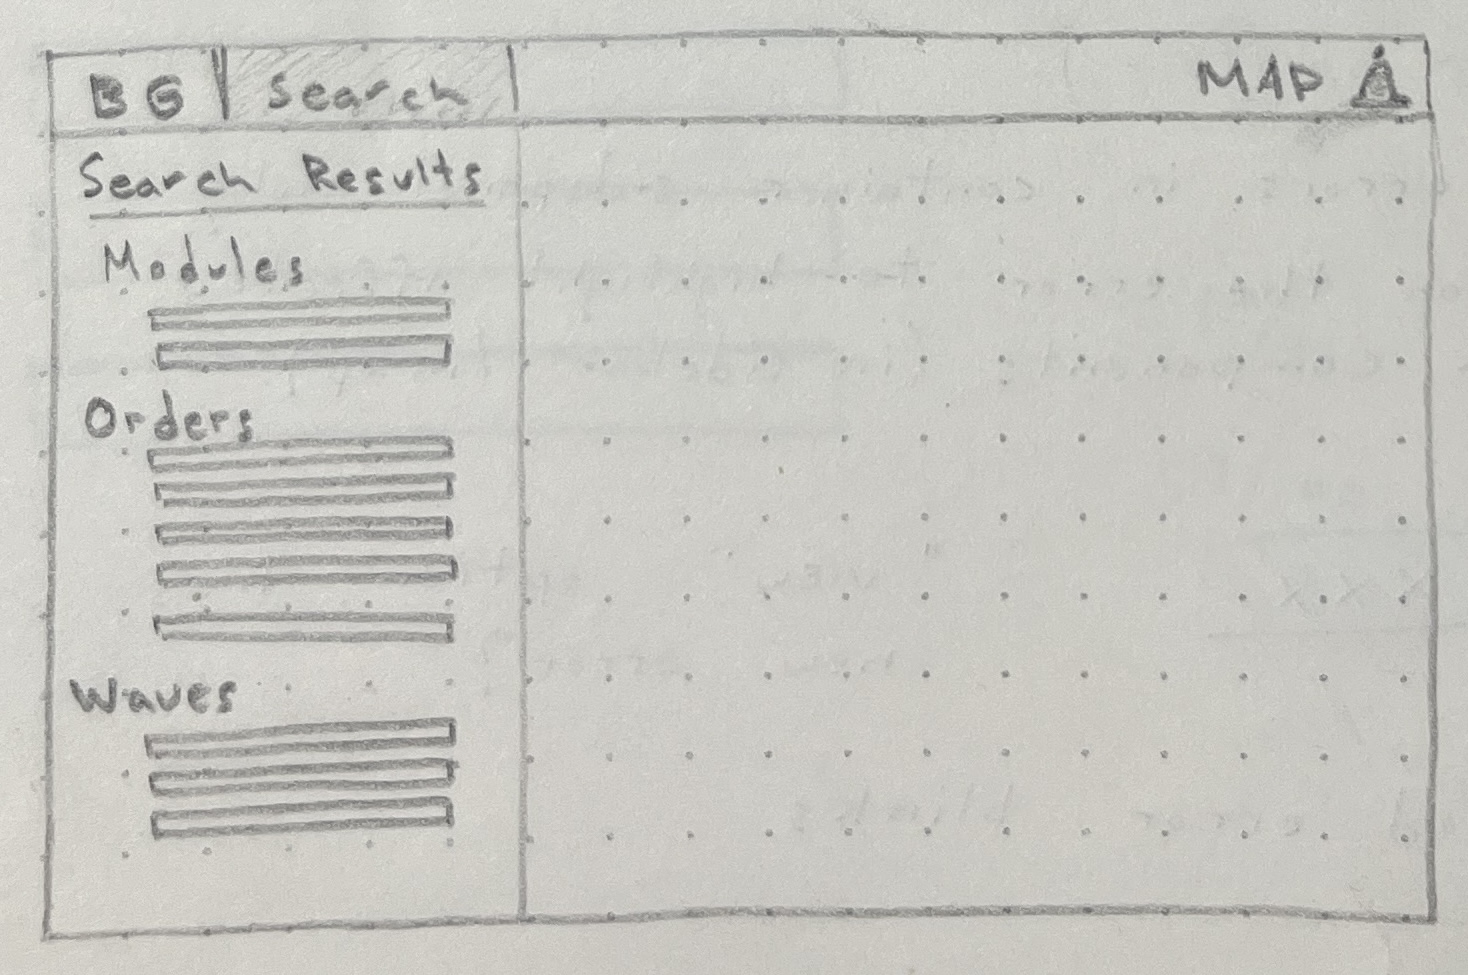 BG Search MAP
Search Results
Modules
Orders
Waves